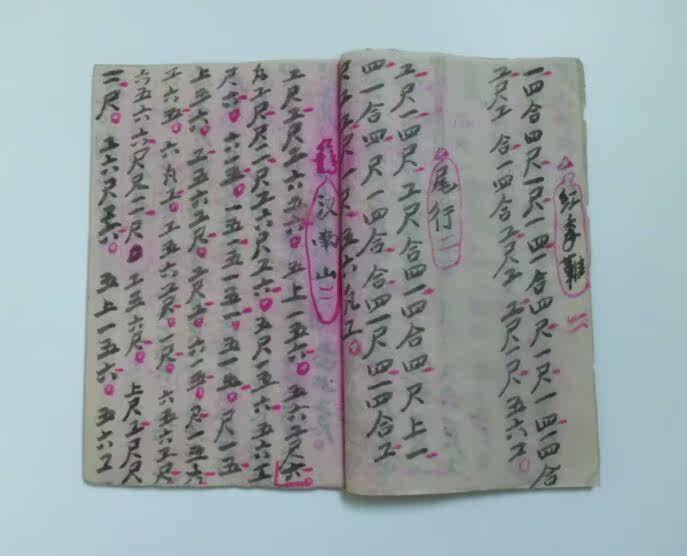 一四合四尺一尺一四一合四尺一尺一四一四合
工尺工 合一四合工尺工 工尺一尺五六工
尾行二
工尺一四尺工尺合四一四合四尺上一
四一合四尺一四合合四一尺四一四合工
汉南山二
工尺工尺工六五六五上一五六五六工尺六
凡工尺尺一尺工六尺工六五尺一五六五六工
尺六六一五一五一五一五一五尺一五
上五六工五六工尺工尺工六一五尺一五六
工六五六凡工工五六工尺一尺六五六工尺
六五六六尺尺一尺工五六尺上尺工尺尺
一尺工六尺五六五上一五六五六工